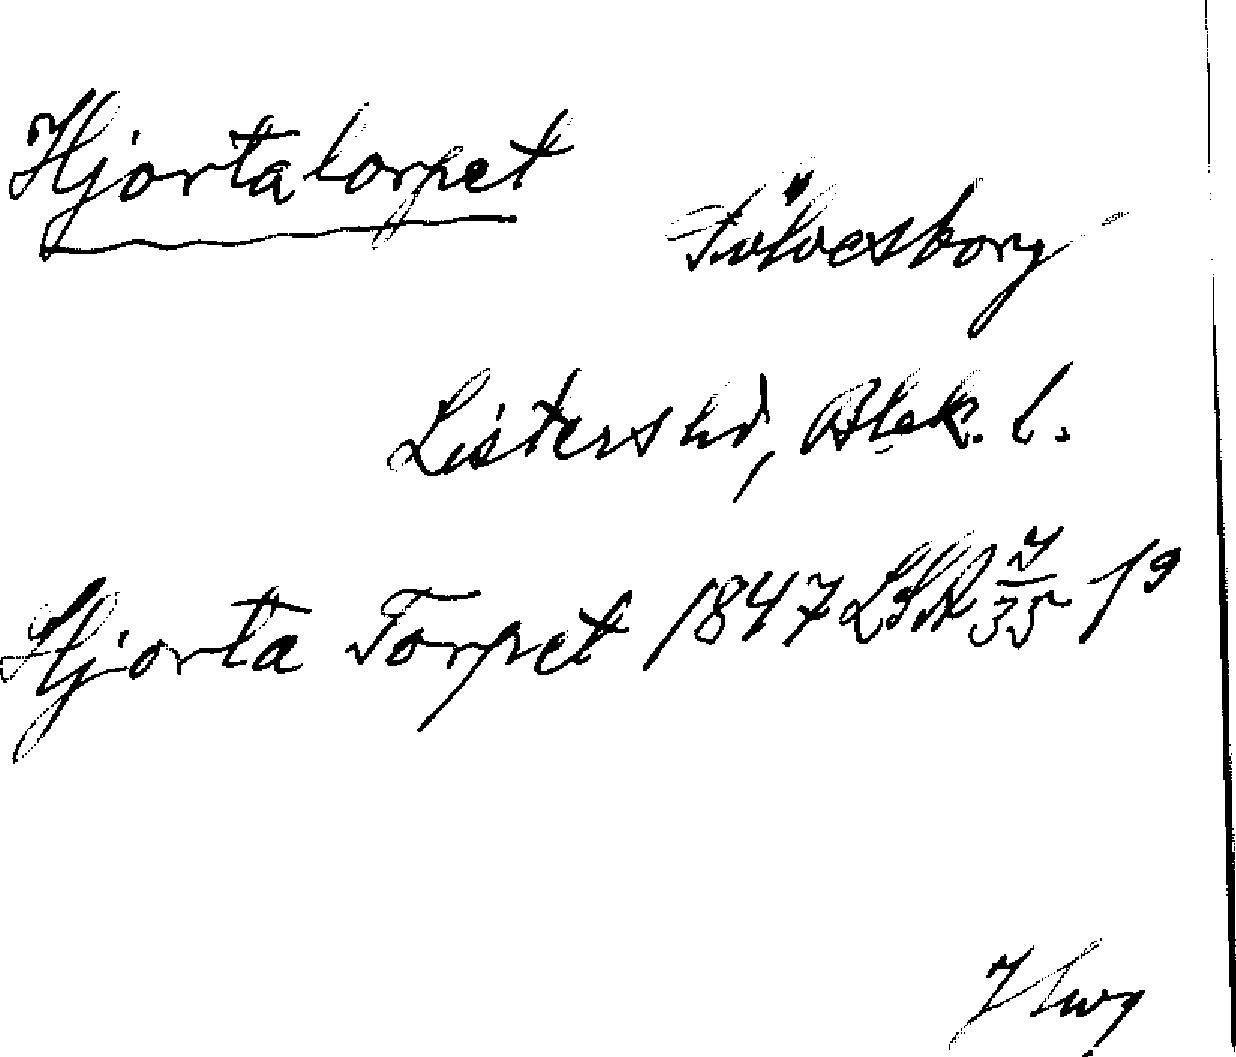 Hjortatorpet
Sölvesborg
Listers hd, Blek. l.
Hjorta Torpet 1847 LSA 4/35 19